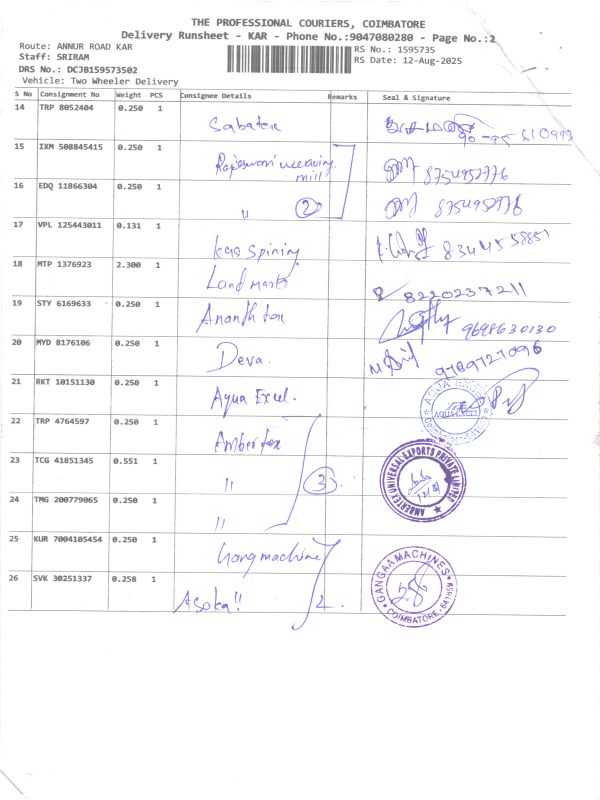 THE PROFESSIONAL COURIERS, COIMBATORE
Delivery Runsheet - KAR - Phone No.:9047080280 - Page No.:2
Route: ANNUR ROAD KAR
RS No.: 1595735
Staff: SRIRAM
RS Date: 12-Aug-2025
DRS No.: DCJB159573502
Vehicle: Two Wheeler Delivery
S No Consignment No Weight PCS Consignee Details Remarks Seal & Signature
14 TRP 8052404 0.250 1 Sabatex 90-95 610993
15 IXM 508845415 0.250 1 Rajeswari weaving mill 8754952776
16 EDQ 11866304 0.250 1 " 2 8754952776
17 VPL 125443011 0.131 1 kas spining 8344558851
18 MTP 1376923 2.300 1 Land mark 8220237211
19 STY 6169633 0.250 1 Ananth tex 9698630130
20 MYD 8176106 0.250 1 Deva. 9789727096
21 RKT 10151130 0.250 1 Aqua Excel. AQUA EXCEL
22 TRP 4764597 0.250 1 Amber tex
23 TCG 41851345 0.551 1 " 3 AMBERTEX UNIVERSAL EXPORTS PRIVATE LIMITED
24 TMG 200779065 0.250 1 "
25 KUR 7004105454 0.250 1 Gang machine
26 SVK 30251337 0.258 1 Asoka " 2. GANGAA MACHINES COIMBATORE